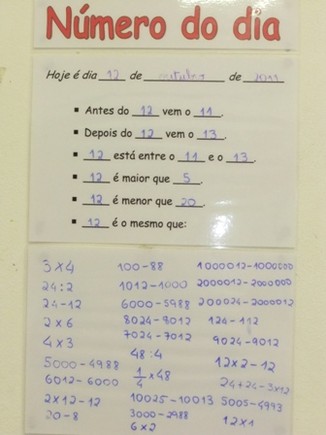 Número do dia
Hoje é dia 12 de outubro de 2011
Antes do 12 vem o 11.
Depois do 12 vem o 13.
12 está entre o 11 e o 13.
12 é maior que 5.
12 é menor que 20.
12 é o mesmo que:
3 x 4
24:2
24-12
2 x 6
4 x 3
5000-4988
6012-6000
2x12-12
20-8
100-88
1012-1000
6000-5988
8024-8012
7024-7012
48:4
1/4 x 48
10025-10013
3000-2988
6x2
1000012-1000000
2000012-2000000
200024-200012
124-112
9024-9012
12x2-12
24+24-3x12
5005-4993
12x1